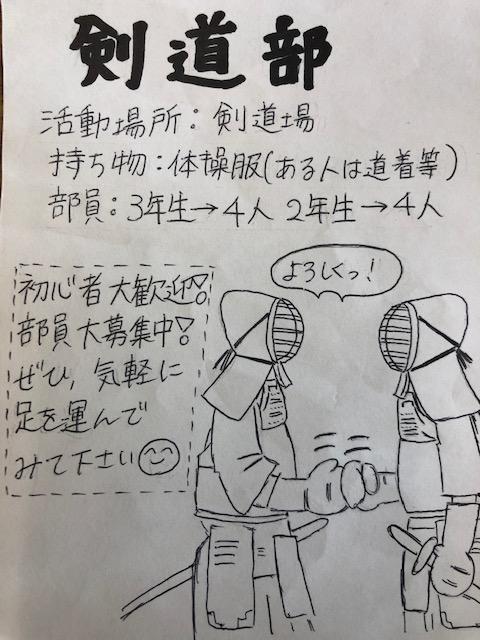 剣道部
活動場所：剣道場
持ち物：体操服(ある人は道着等)
部員：3年生→4人 2年生→4人
よろしくっ！
初心者大歓迎！
部員大募集中！
ぜひ、気軽に
足を運んで
みて下さい